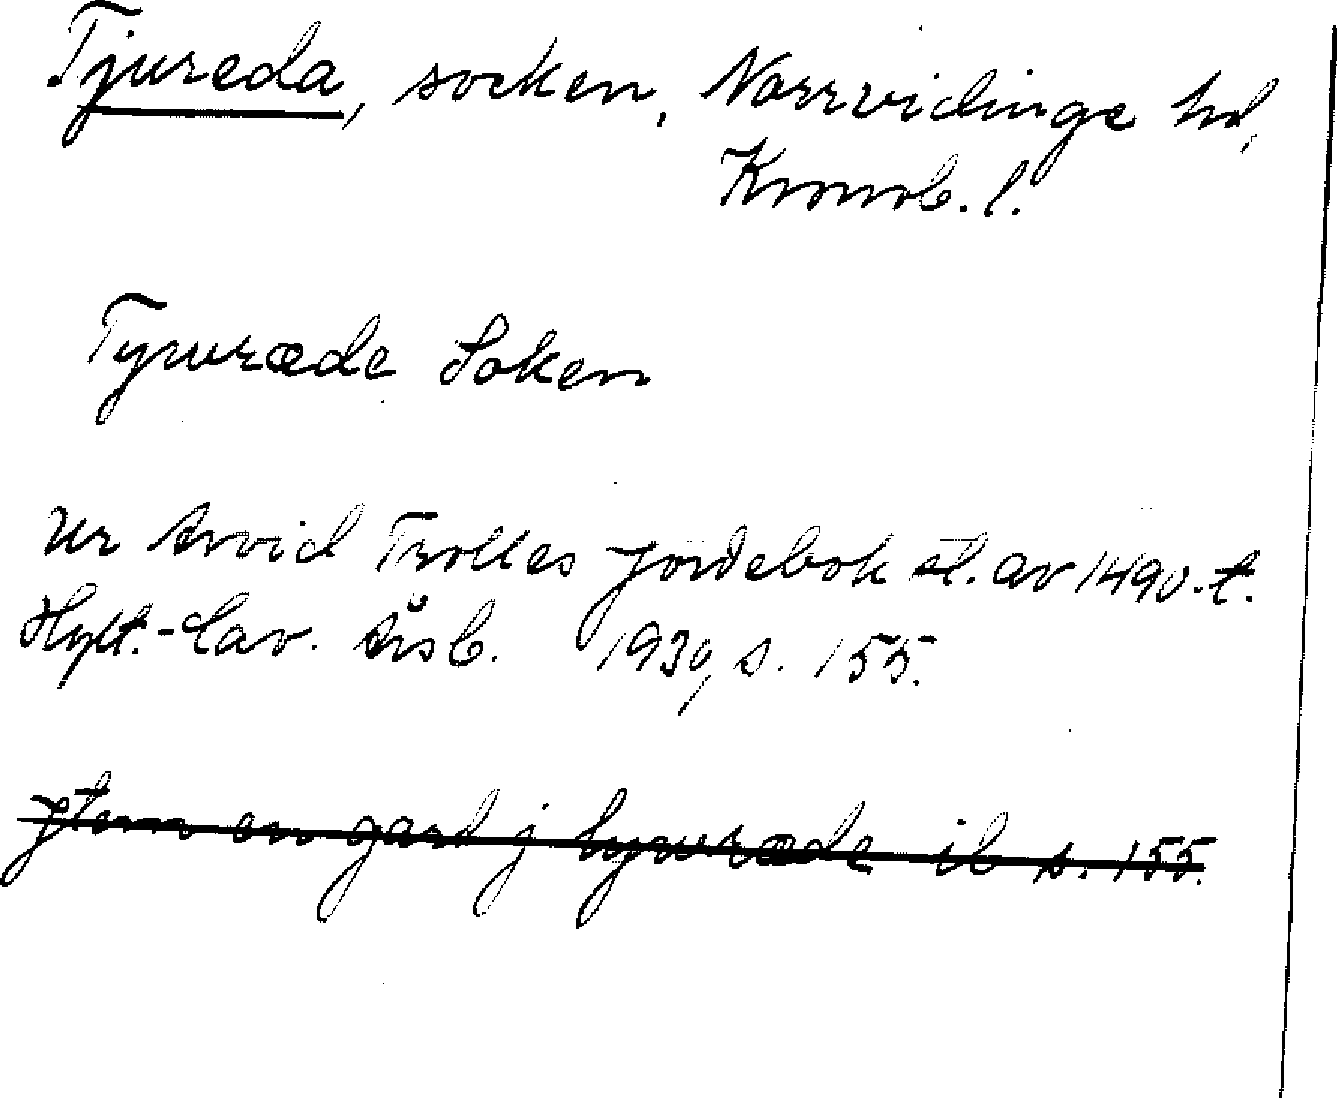 Tjureda, socken, Norrvidinge hd,
Kronob. l.
Tywræde Soken
Ur Arvid Trolles jordebok sl. av 1490-t.
Hylt.-Cav. Årsb. 1930, s. 155.
Jtem en gard j tywræde ib s. 155.